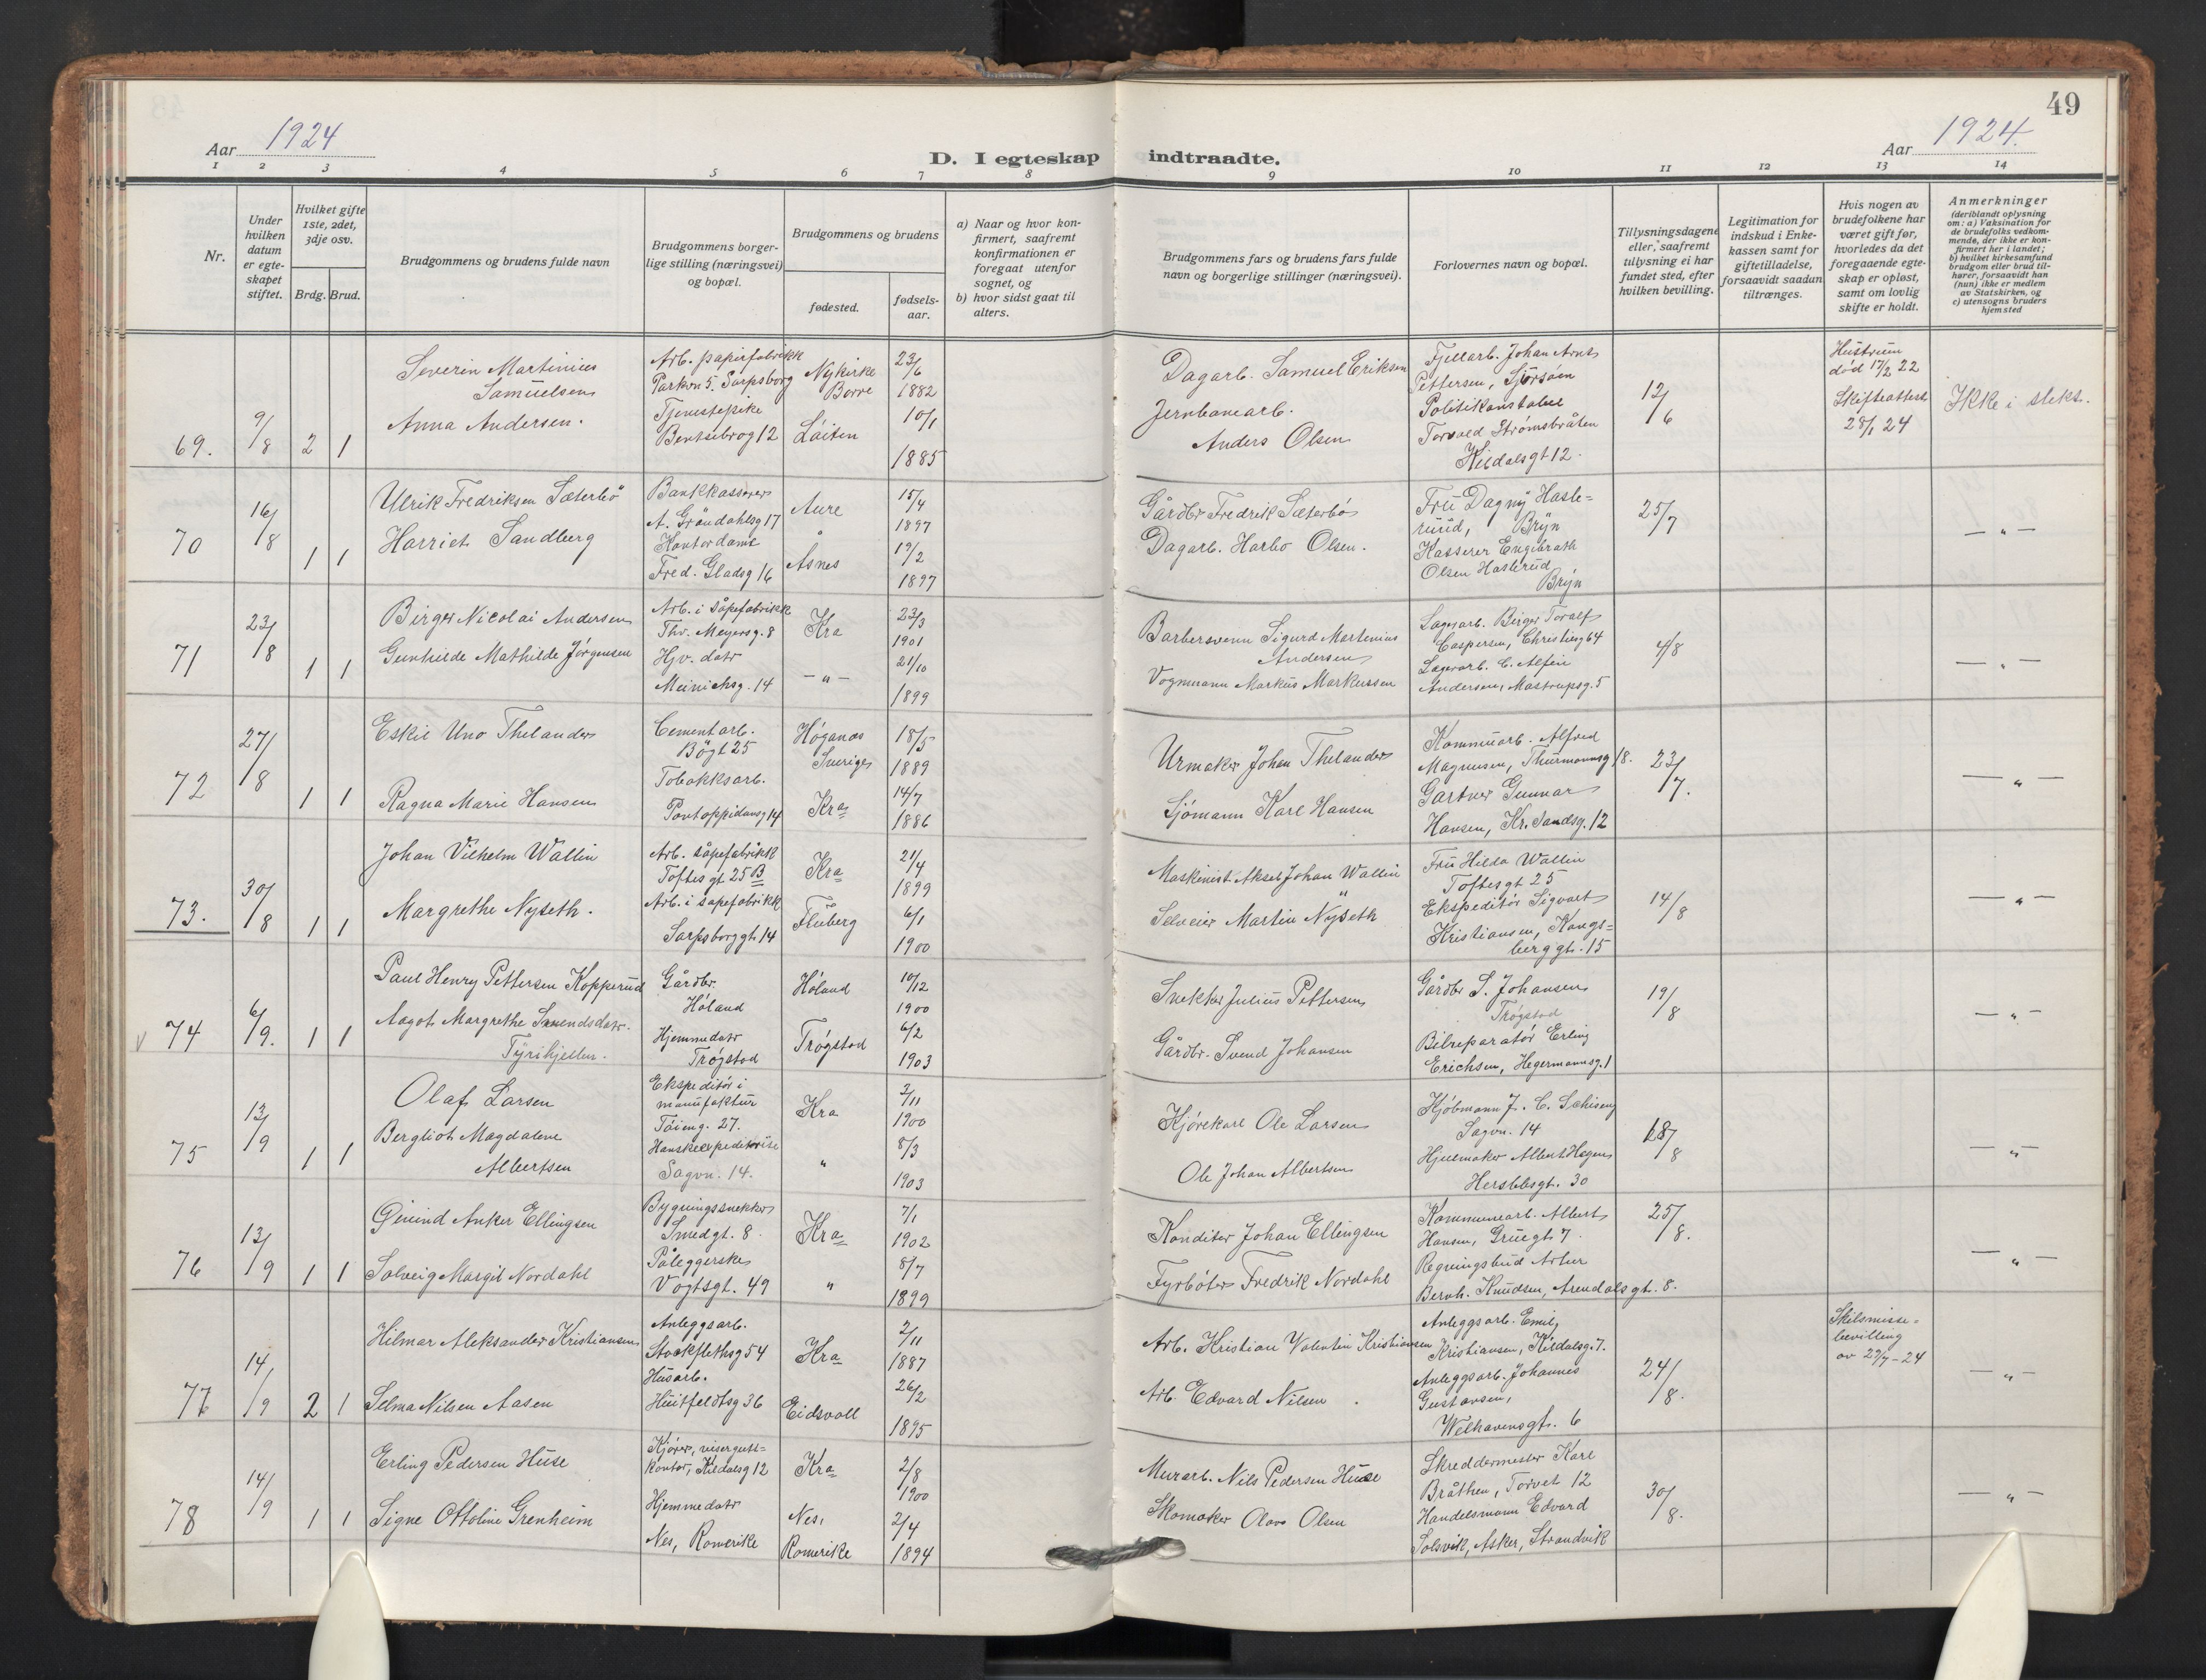 49
Aar 1924
Aar 1924.
D. I egteskap indtraadte.
1 2 3 4 5 6 7 8 9 10 11 12 13 14
Nr.
Under hvilken datum er egteskapet stiftet.
Hvilket gifte 1ste, 2det, 3dje osv.
Brdg. Brud.
Brudgommens og brudens fulde navn
Brudgommens borger-
lige stilling (næringsvei)
og bopæl.
Brudgommens og brudens
fødested.
fødsels-
aar.
a) Naar og hvor kon-
firmert, saafremt
konfirmationen er
foregaat utenfor
sognet, og
b) hvor sidst gaat til
alters.
Brudgommens fars og brudens fars fulde
navn og borgerlige stillinger (næringsvei).
Forlovernes navn og bopæl.
Tillysningsdagene
eller, saafremt
tillysning ei har
fundet sted, efter
hvilken bevilling.
Legitimation for
indskud i Enke-
kassen samt for
giftetilladelse,
forsaavidt saadan
tiltrænges.
Hvis nogen av
brudefolkene har
været gift før,
hvorledes da det
foregaaende egte-
skap er opløst,
samt om lovlig
skifte er holdt.
Anmerkninger
(deriblandt oplysning
om: a) Vaksination for
de brudefolks vedkom-
mende, der ikke er kon-
firmert her i landet;
b) hvilket kirkesamfund
brudgom eller brud til-
hører, forsaavidt han
(hun) ikke er medlem
av Statskirken, og
c) utensogns bruders
hjemsted
69. 9/8 2 1
Severin Martinius
Samuelsen
Anna Andersen.
Arb. papirfabrikk
Parkvn 5. Sarpsborg
Tjenestepike
Bentsebrog 12
Nykirke
Borre
Løiten
23/6
1882
10/1
1885
Dagarb. Samuel Eriksen
Jernbanearb.
Anders Olsen
Fjellarb. Johan Arnt
Pettersen,
Politikonstabel
Torvald Strømsbråten
Kildalsgt 12.
12/6
Hustruen
død 17/2 22
Skifteattest
28/1 24
Ikke i slekt.
70 16/8 1 1
Ulrik Fredriksen Sæterbö
Harriet Sandberg
Bankkasserer
A. Gröndahlsg 17
Kontordame
Fred. Gladsg 16
Aure
Åsnes
15/4
1897
19/2
1897
Gårdbr Fredrik Sæterbö
Dagarb. Harbo Olsen.
Fru Dagny Hasle-
rud, Bryn
Kasserer Engebrath
Olsen Haslerud,
Bryn
25/7
— „ —
71 23/8 1 1
Birger Nicolai Andersen
Gunhilde Mathilde Jörgensen
Arb. i såpefabrikk
Thv. Meyersg. 8
Hjv. datr
Meinichsg. 14
Kra
— „ —
23/3
1901
21/10
1899
Barbersvenn Sigurd Martenius
Andersen
Vognmann Markus Markussen
Lagerarb. Birger Toralf
Caspersen, Christiesg 64
Lagerarb. C. Alfen
Andersen, Mastrupsg. 5
4/8
— „ —
72 27/8 1 1
Eskil Uno Thelander
Ragna Marie Hansen
Cementarb.
Bögt 25
Tobakksarb.
Pontoppidansg 14
Höganæs
Sverige
Kra
18/5
1889
14/7
1886
Urmaker Johan Thelander
Sjömann Karl Hansen
Kommunarb. Alfred
Magnusen, Thurmannsg 18.
Gartner Gunnar
Hansen, Kr. Sandsg. 12
23/7.
— „ —
73. 30/8 1 1
Johan Vilhelm Wallin
Margrethe Nyseth.
Arb. såpefabrikk
Toftesgt 25 B
Arb. i såpefabrikk
Sarpsborggt. 14
Kra
Fluberg
21/4
1899
6/1
1900
Maskinist Aksel Johan Wallin
Selveier Martin Nyseth
Fru Hilda Wallin
Toftesgt 25
Ekspeditör Sigvart
Kristiansen, Kongs-
berggt. 15
14/8
— „ —
74 6/9. 1 1
Paul Henry Pettersen Kopperud
Aagot Margrethe Svendsdatr.
Tyrihjellen.
Gårdbr.
Höland
Hjemmedatr
Trögstad
Höland
Trögstad
10/12
1900
6/2
1903
Snekker Julius Pettersen
Gårdbr. Svend Johansen
Gårdbr S. Johansen
Trögstad
Bilreparatör Erling
Erichsen, Hegermannsg. 1
19/8
— „ —
75 13/9 1 1
Olaf Larsen
Bergliot Magdalene
Albertsen
Ekspeditör i
manufaktur
Töieng. 27.
Hanskeexpeditrise
Sagvn. 14.
Kra
„
3/11
1900
8/3
1903
Kjörekarl Ole Larsen
Ole Johan Albertsen
Kjöbmann J. C. Schiseng
Sagvn. 14
Hjulmaker Albert Hagen
Herslebsgt. 30
18/8
— „ —
76 13/9 1 1
Øivind Anker Ellingsen
Solveig Margit Nordahl
Bygningssnekker
Smedgt. 8.
Påleggerske
Vogtsgt. 49
Kra
„
7/1
1902
8/7
1899
Konditor Johan Ellingsen
Fyrböter Fredrik Nordahl
Kommunearb. Albert
Hansen, Gruegt. 7.
Regningsbud Artur
Bernh. Knudsen, Arendalsgt. 8.
25/8.
— „ —
77 14/9 2 1
Hilmar Aleksander Kristiansen
Selma Nilsen Aasen
Anleggsarb.
Stockflethsg 54
Husarb.
Huitfeldtsg 36
Kra
Eidsvoll
2/11
1887
26/2
1895
Arb. Kristian Valentin Kristiansen
Arb. Edvard Nilsen
Anleggsarb. Emil
Kristiansen, Kildalsg. 7.
Anleggsarb. Johannes
Gustavsen,
Welhavensgt. 6
24/8.
Skilsmisse-
bevilling
av 29/7-24
— „ —
78 14/9 1 1
Erling Pedersen Huse
Signe Ottoline Grenheim
Kjörer, visergutt-
kontor, Kildalsg 12
Hjemmedatr
Nes, Romerike
Kra
Nes,
Romerike
2/8
1900
2/4
1894
Murarb. Nils Pedersen Huse
Skomaker Olavo Olsen
Skreddermester Karl
Bråthen, Torvet 12
Handelsmann Edvard
Solsvik, Asker, Strandvik
30/8.
— „ —